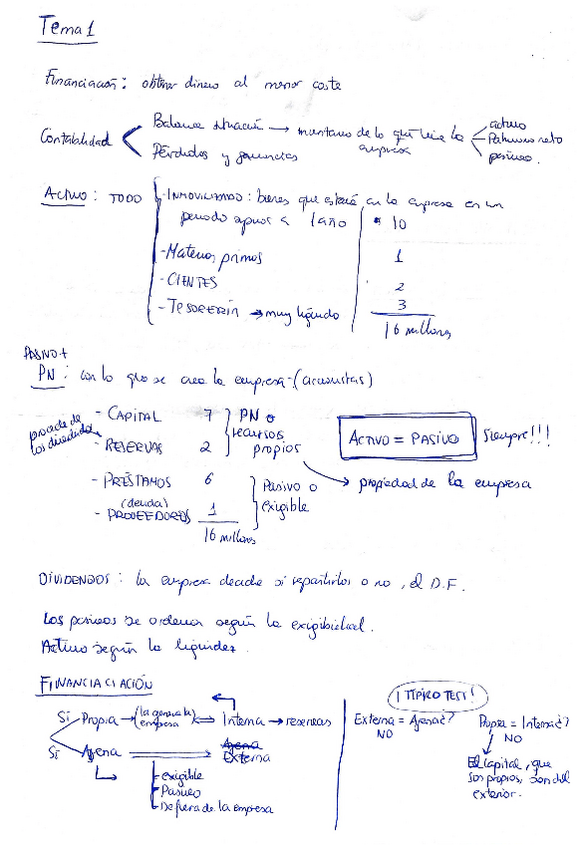 Tema 1
Financiación: obtener dinero al menor coste
Contabilidad
Balance situación → inventario de lo que tiene la empresa
activo
Patrimonio neto
pasivo.
Pérdidas y ganancias
ACTIVO: TODO
- INMOVILIZADO: bienes que estarán en la empresa en un
periodo superior a 1 año 10
- Materias primas 1
- CLIENTES 2
- TESORERÍA → muy líquido 3
16 millones
PASIVO +
PN: con lo que se crea la empresa - (accionistas)
- CAPITAL 7
procede de los dividendos
- RESERVAS 2
PN o recursos propios
→ propiedad de la empresa
ACTIVO = PASIVO Siempre!!!
- PRÉSTAMOS 6
(deuda)
- PROVEEDORES 1
Pasivo o exigible
16 millones
DIVIDENDOS: la empresa decide si repartirlos o no, el D.F.
Los pasivos se ordenan según la exigibilidad.
Activo según la liquidez.
FINANCIACIÓN
Sí Propia → (la genera la empresa) ⇒ Interna → reservas
Sí Ajena ⇒ Externa
- exigible
- Pasivo
- De fuera de la empresa
¡TÍPICO TEST!
Externa = Ajena?
NO
Propia = Interna?
NO
El capital, que
son propios, son del
exterior.